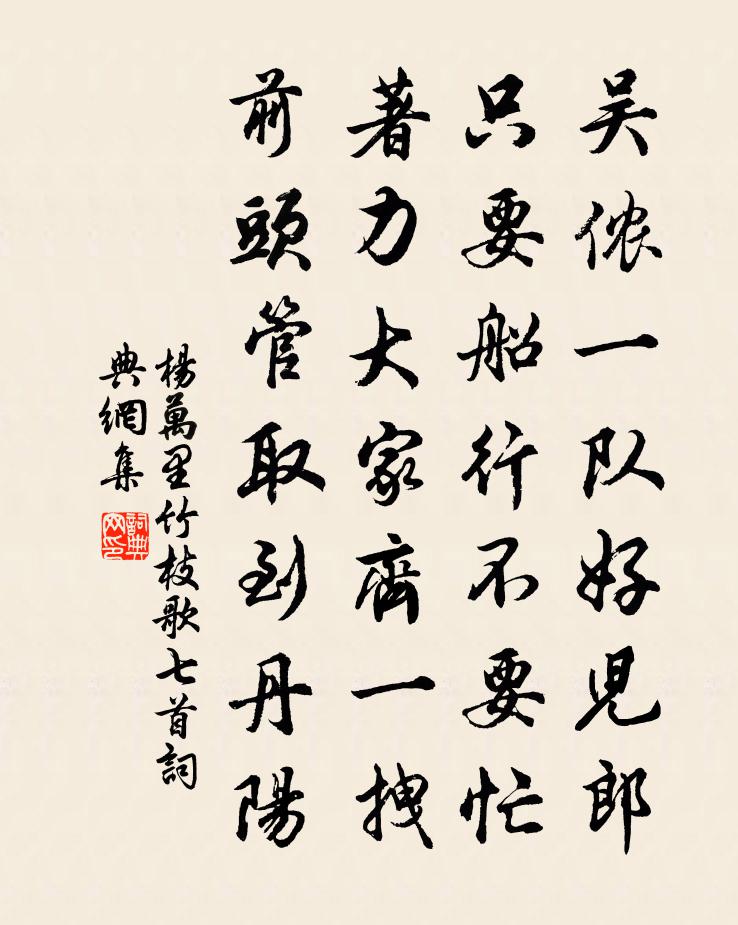 吴侬一队好児郎
只要船行不要忙
著力大家齊一拽
前頭管取到丹陽
楊萬里竹枝歌七首詞
典網集
詞典
网印